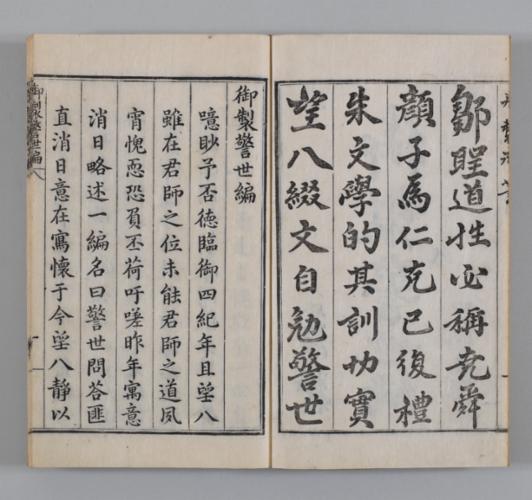 鄒聖道性必稱堯舜
顔子爲仁克己復禮
朱文學的其訓切實
望八綴文自勉警世
御製警世編
噫眇予否德臨御四紀年且望八
雖在君師之位未能君師之道夙
宵愧恧恐負丕荷吁嗟昨年寓意
消日略述一編名曰警世問答匪
直消日意在寓懷于今望八靜以
御製警世編